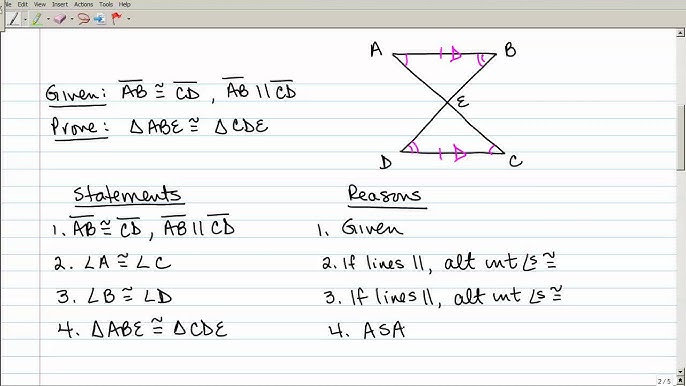 File Edit View Insert Actions Tools Help
A B
Given: AB ≅ CD , AB || CD
E
Prove: △ABE ≅ △CDE
D C
Statements Reasons
1. AB ≅ CD , AB || CD 1. Given
2. ∠A ≅ ∠C 2. If lines ||, alt int ∠s ≅
3. ∠B ≅ ∠D 3. If lines ||, alt int ∠s ≅
4. △ABE ≅ △CDE 4. ASA
2 / 5